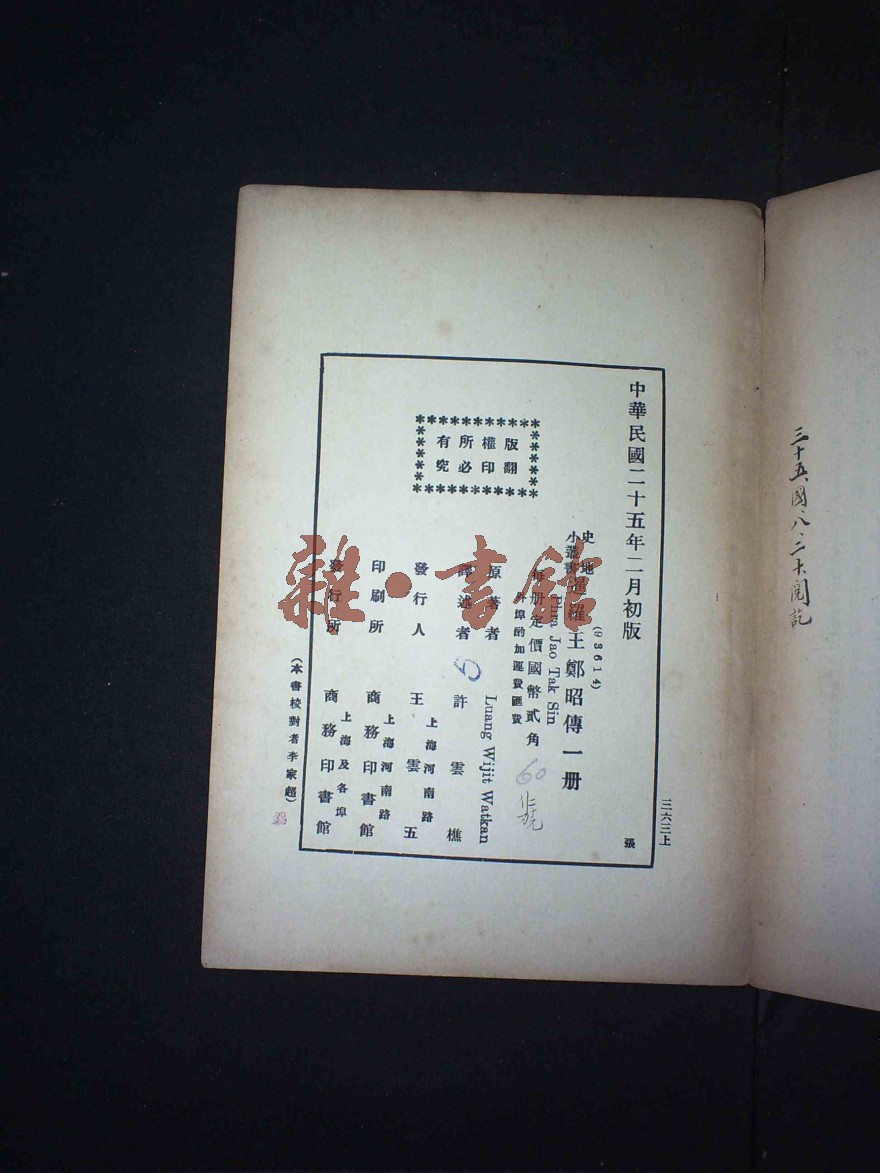 三十五、國、八、二十閱訖
中華民國二十五年二月初版
三六三上
(93614)
史地小叢書
暹羅王鄭昭傳一册
Phra Jao Tak Sin
每册定價國幣貳角
外埠酌加運費匯費
60
原著者 Luang Wijit Watkan
譯述者 許雲樵
發行人 王雲五
上海河南路
印刷所 商務印書館
上海河南路
發行所 商務印書館
上海及各埠
版權所有
翻印必究
(本書校對者李家超)
張
雜·書館